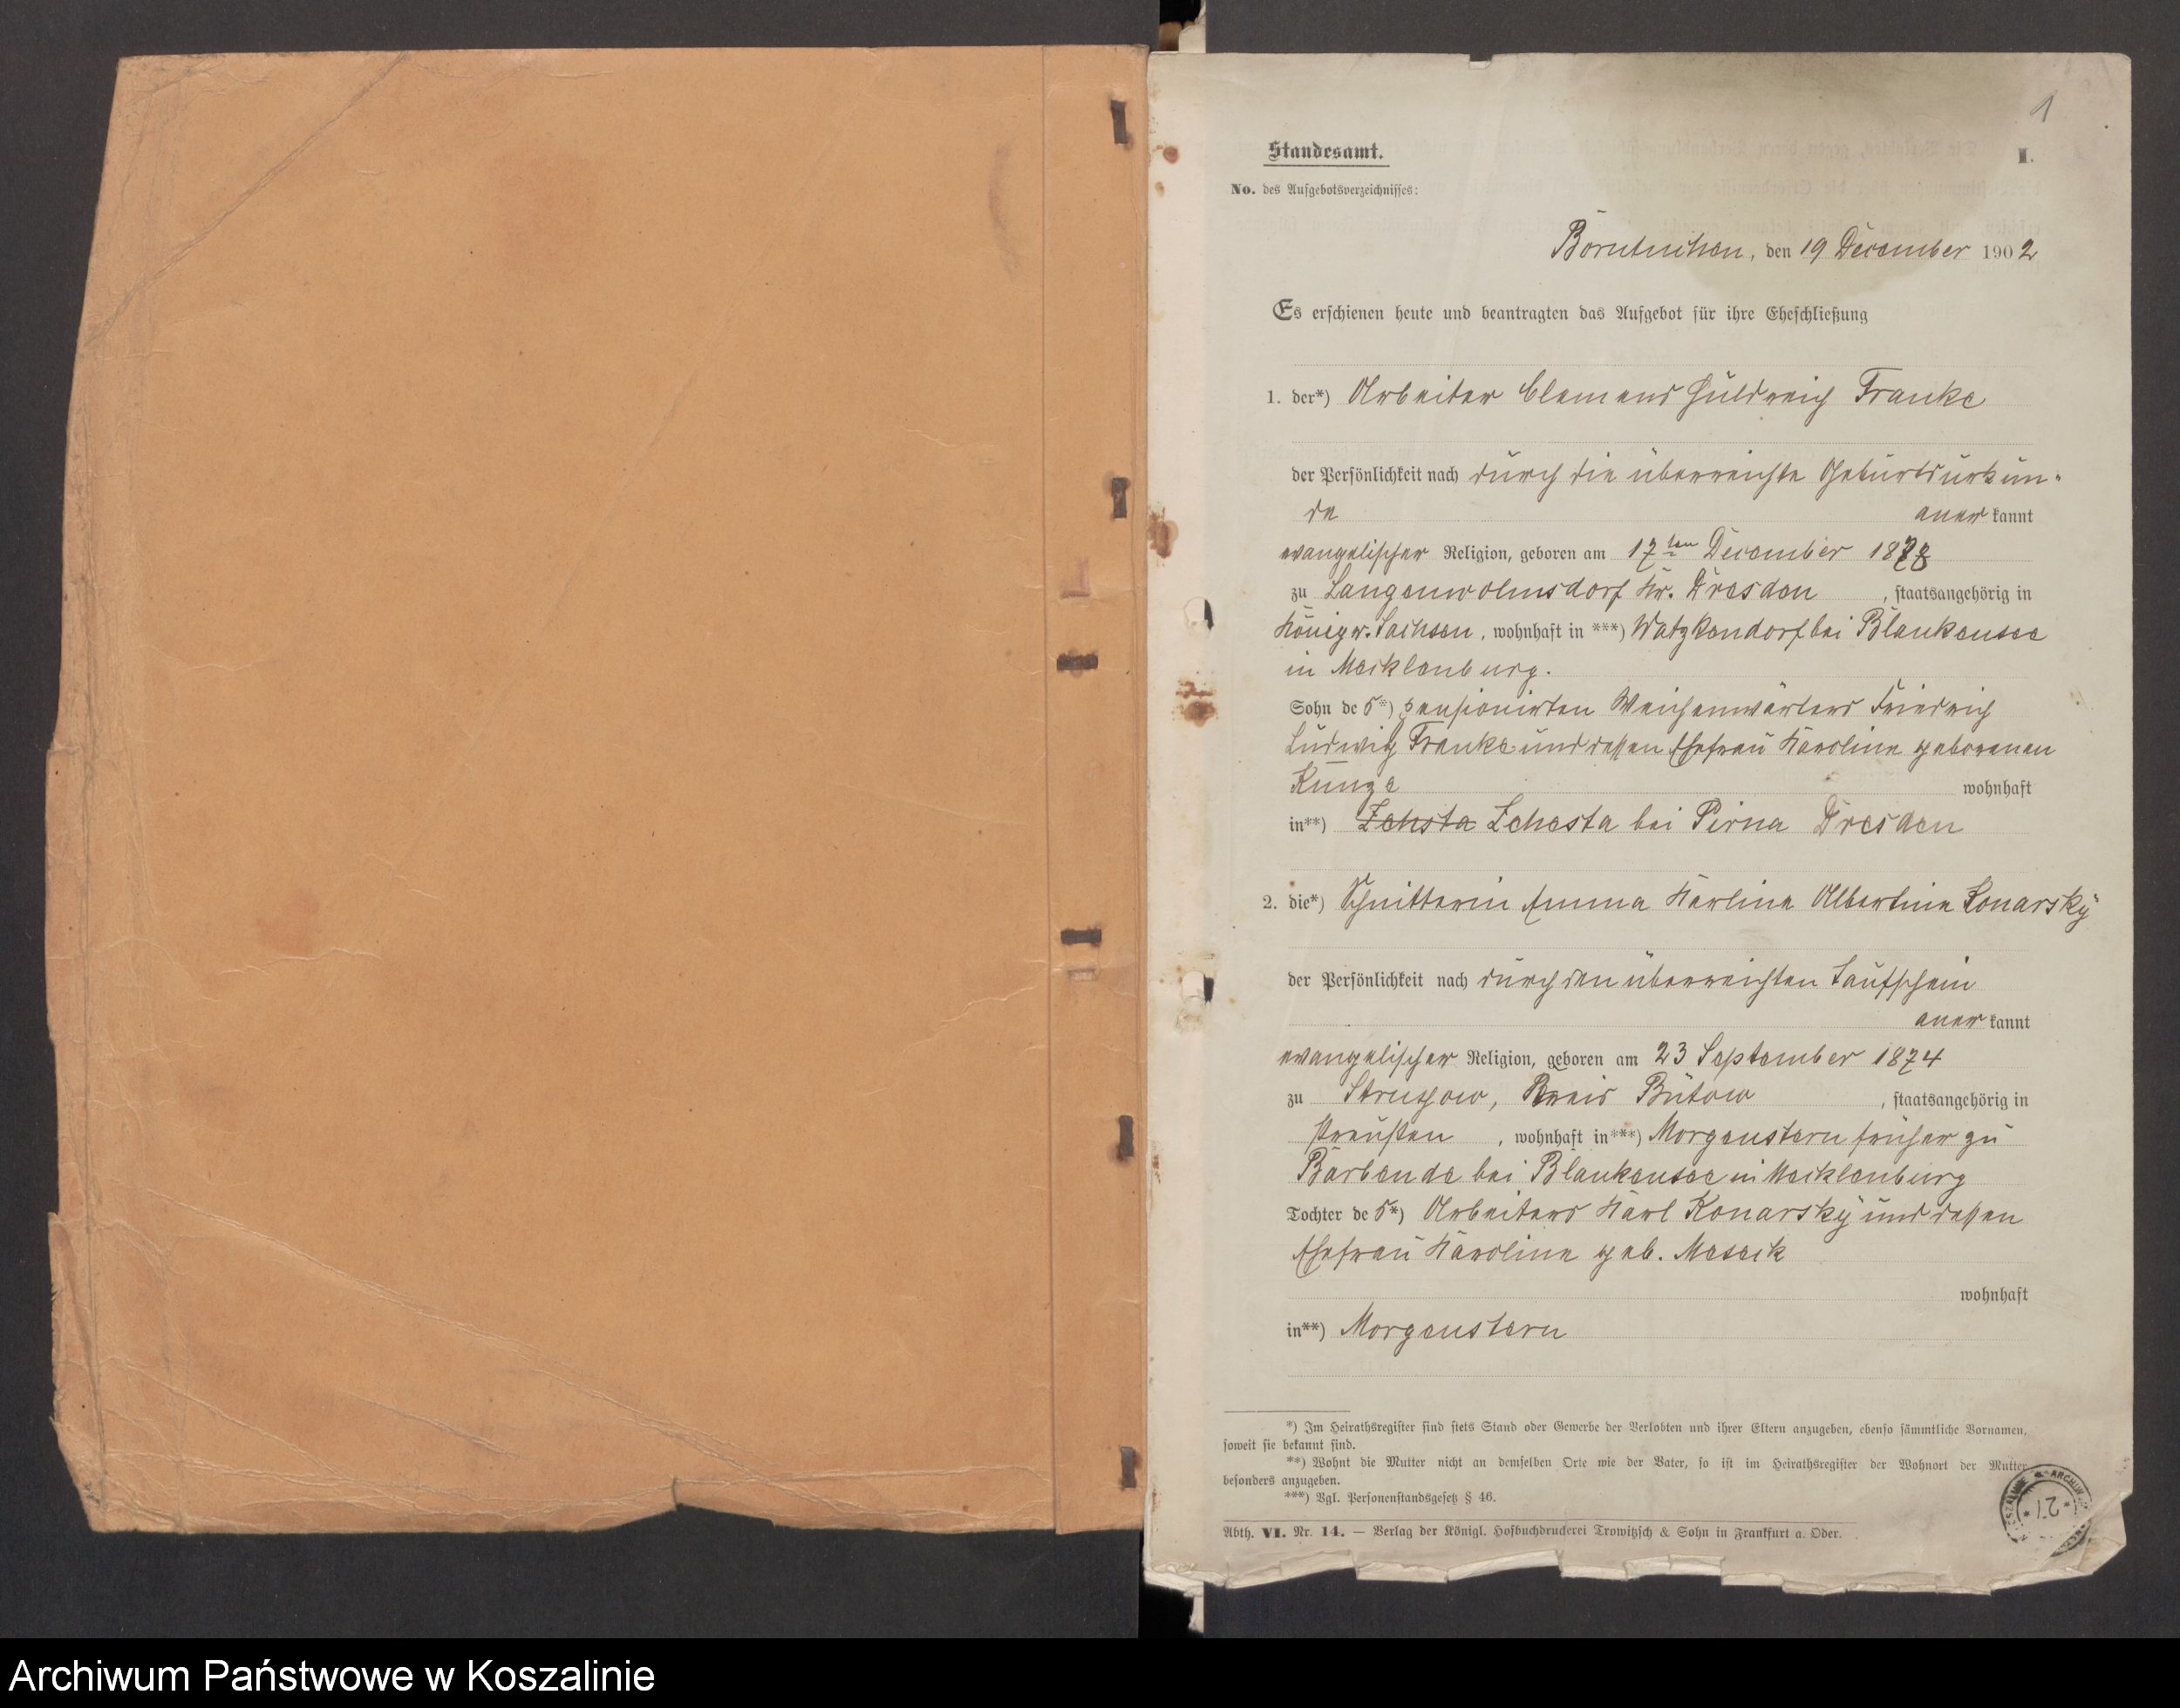 1
Standesamt.
I.
No. des Aufgebotsverzeichnisses:
Borntuchen, den 19 December 1902
Es erschienen heute und beantragten das Aufgebot für ihre Eheschließung
1. der*) Arbeiter Clemens Huldreich Franke
der Persönlichkeit nach durch die überreichte Geburtsurkun-
de anerkannt
evangelischer Religion, geboren am 17ten December 1878
zu Langenwolmsdorf Kr. Dresden, staatsangehörig in
Königr. Sachsen, wohnhaft in ***) Watzkendorf bei Blankensee
in Mecklenburg.
Sohn des*) pensionirten Weichenwärters Friedrich
Ludwig Franke und dessen Ehefrau Karoline geborenen
Kunze wohnhaft
in**) Zehsta Zehesta bei Pirna Dresden
2. die*) Schnitterin Emma Karline Albertine Konarsky
der Persönlichkeit nach durch den überreichten Taufschein
anerkannt
evangelischer Religion, geboren am 23 September 1874
zu Strussow, Kreis Bütow, staatsangehörig in
Preußen, wohnhaft in***) Morgenstern früher zu
Barbende bei Blankensee in Mecklenburg
Tochter des*) Arbeiters Karl Konarsky und dessen
Ehefrau Karoline geb. Maseik
wohnhaft
in**) Morgenstern
*) Im Heirathsregister sind stets Stand oder Gewerbe der Verlobten und ihrer Eltern anzugeben, ebenso sämmtliche Vornamen,
soweit sie bekannt sind.
**) Wohnt die Mutter nicht an demselben Orte wie der Vater, so ist im Heirathsregister der Wohnort der Mutter
besonders anzugeben.
***) Vgl. Personenstandsgesetz § 46.
Abth. VI. Nr. 14. — Verlag der Königl. Hofbuchdruckerei Trowitzsch & Sohn in Frankfurt a. Oder.
Archiwum Państwowe w Koszalinie